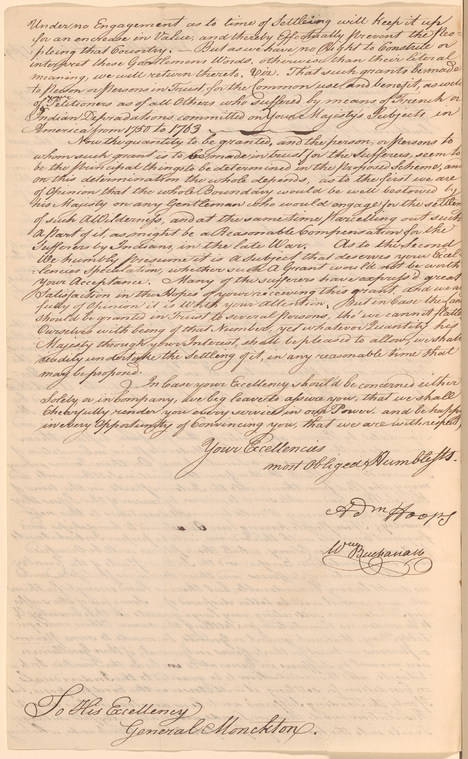 Under no Engagement as to time of Settleing will keep it up
for an encrease in Value, and thereby Effectually prevent the Peo-
pleing that Country. — But as we have no Right to Construe or
interpret these Gentlemens Words, otherwise than their literal
meaning, we will return thereto, Viz. That such grants be made
to Person or Persons in Trust for the Common use, and benefit, as well
of Petitioners as of all Others who suffered by means of French or
Indian Depradations committed on Your Majesty's Subjects in
America from 1750 to 1763
Now the quantity to be granted, and the person, or Persons to
whom such grant is to be made in trust for the Sufferers, seem to
be the principal things to be determined in the proposed Scheme, and
on this determination the whole depends, as to the first we are
of Opinion that the whole Boundary would be well bestowed by
his Majesty on any Gentleman who would engage for the settlem
of such A Wilderness, and at the same time, parcelling out such
A part of it as might be a Reasonable Compensation for the
Sufferers by Indians, in the late War. As to the Second
We humbly presume it is A Subject that deserves your Excel-
lencies Speculation, whether such A Grant would not be worth
your Acceptance. Many of the sufferers have expres'd great
Satisfaction in the Hopes of your receiving this grant, and we are
fully of Opinion it is Worth your Attention. But in case the Land
should be granted in Trust to several persons, tho' we cannot flatter
Ourselves with being of that Number, yet whatever Quantity his
Majesty through your Interest, shall be pleased to allow, we shall
undertake the Settleing of it, in any reasonable time that
may be propos'd.
In Case your Excellency should be concerned either
Solely or in Company, we beg leave to assure you, that we shall
Chearfully render you every service in our Power. and be happy
in every Opportunity of Convincing you, that we are with respect
Your Excellencies
most Obliged & Humble Sts.
Adm Hoops
Wm Buchanan
To His Excellency
General Monckton.